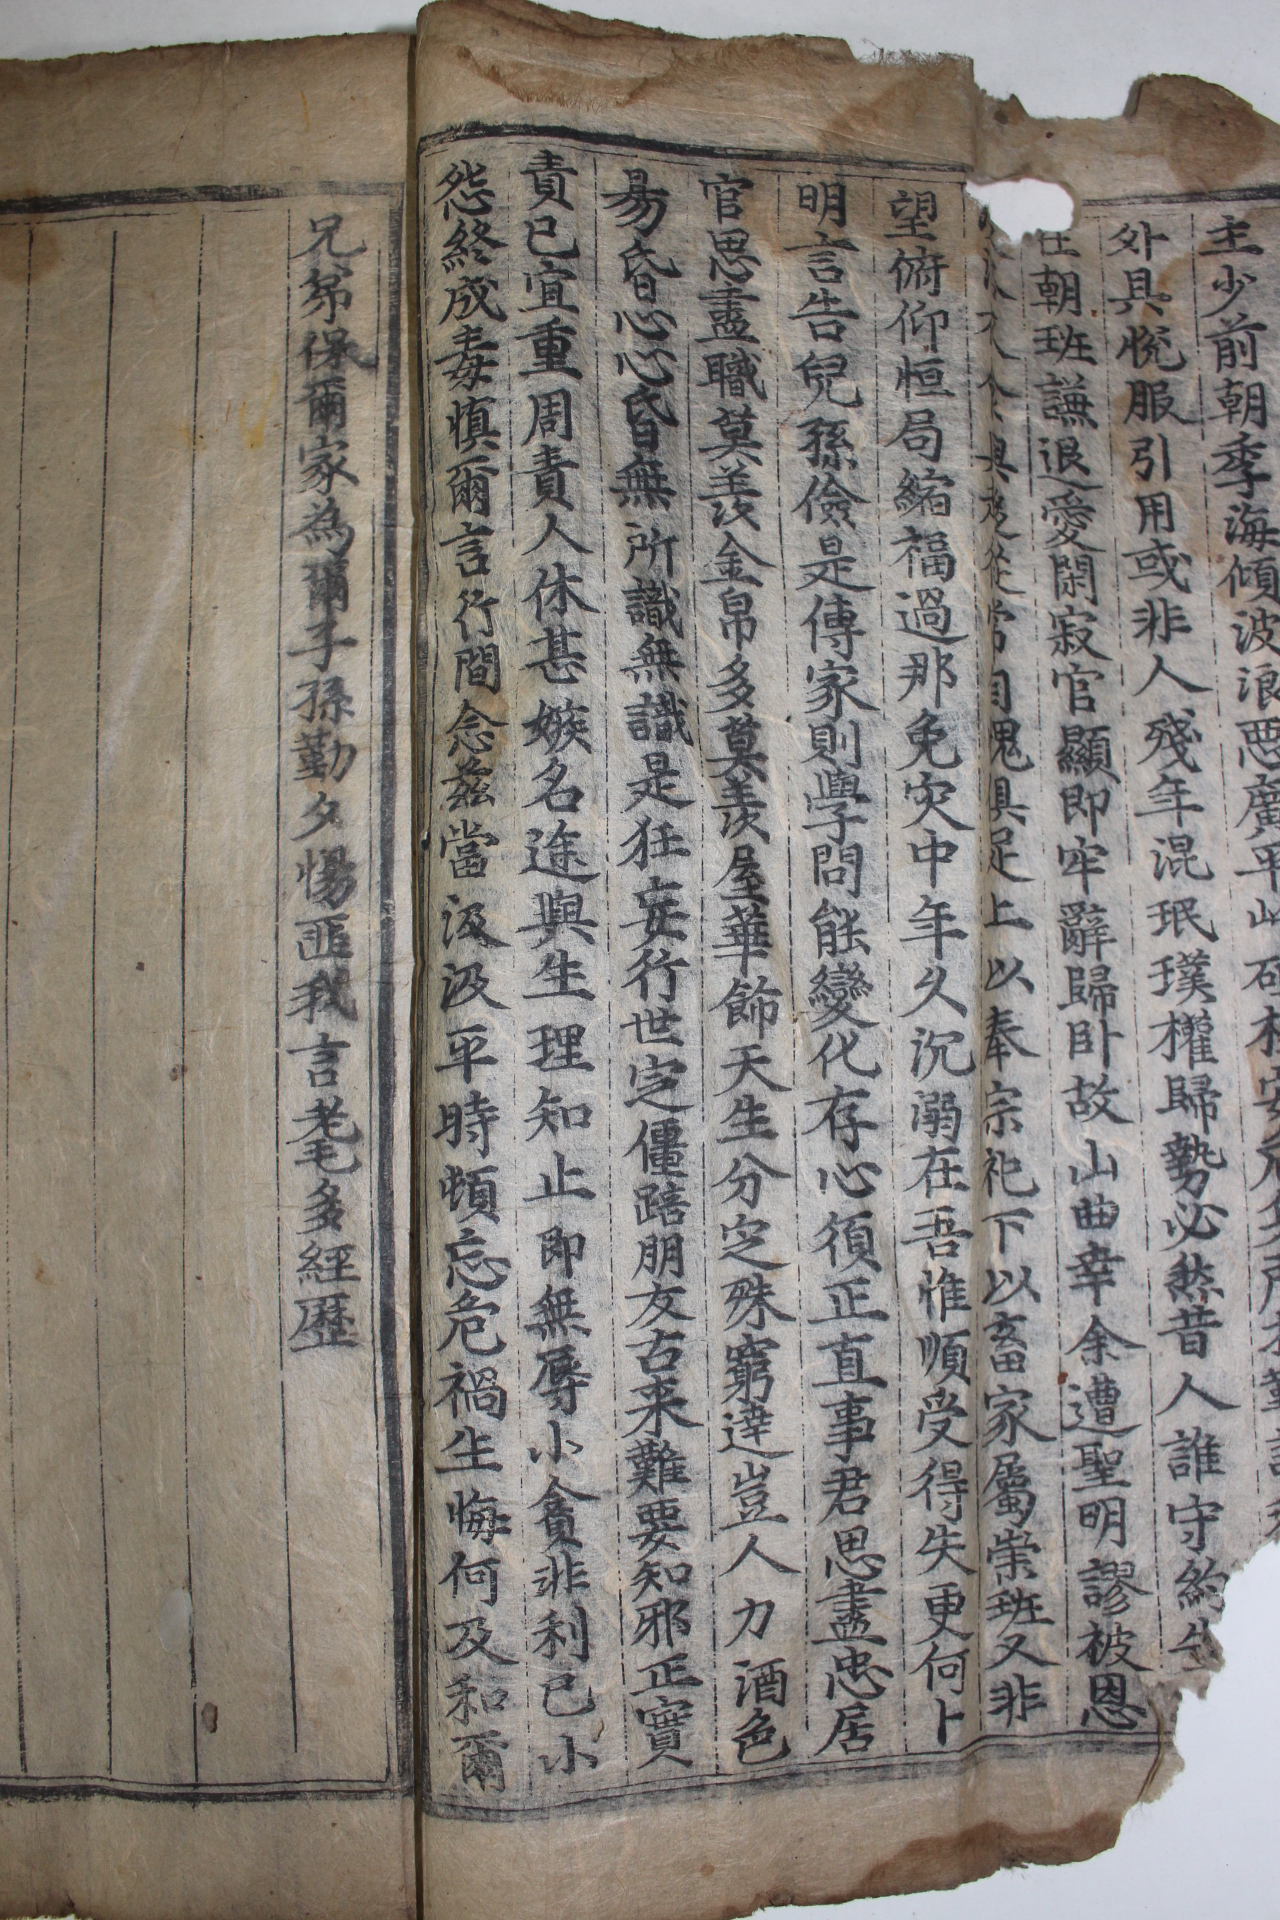 主少前朝季海傾波浪惡廣平
外具悅服引用或非人殘年混珉璞權歸勢必然昔人誰守約
在朝班謙退愛閑寂官顯即牢辭歸卧故山曲幸余遭聖明謬被恩
常自愧俱足上以奉宗祀下以畜家屬崇班又非
望俯仰恒局縮福過那免灾中年久沉溺在吾惟順受得失更何卜
明言告兒孫儉是傳家則學問能變化存心須正直事君思盡忠居
官思盡職莫羡金帛多莫羡屋華飾天生分定殊窮達豈人力酒色
易昏心心昏無所識無識是狂妄行世定僵踣朋友古来難要知邪正實
責已宜重周責人休甚嫉名途與生理知止即無辱小貪非利已小
怨終成毒慎爾言行間念兹當汲汲平時頓忘危禍生悔何及和爾
兄弟保爾家為爾子孫勤夕惕匪我言老耄多經歷